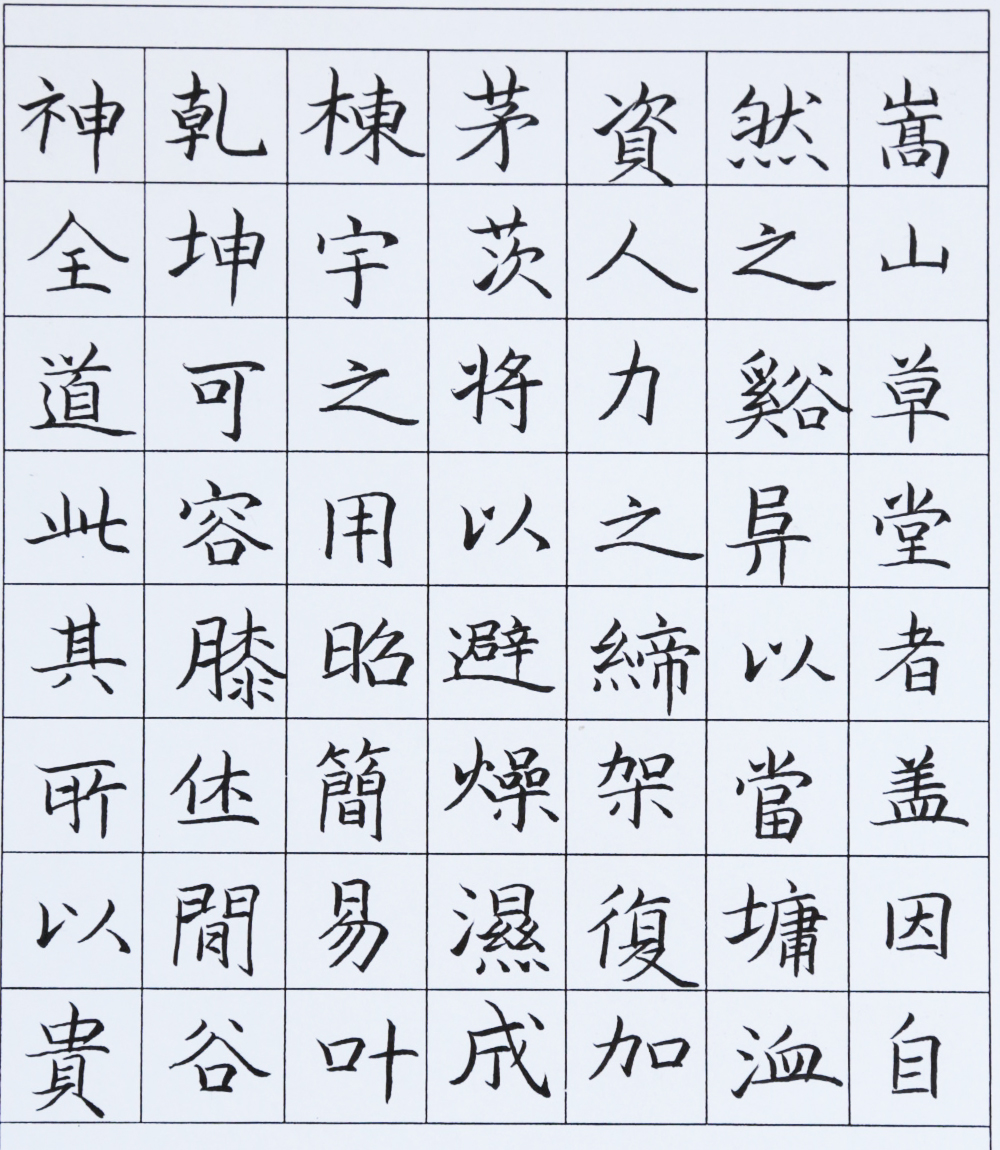 嵩山草堂者盖因自
然之谿阜以當墉洫
資人力之締架復加
茅茨将以避燥濕成
棟宇之用昭簡易叶
乾坤可容膝休閒谷
神全道此其所以貴